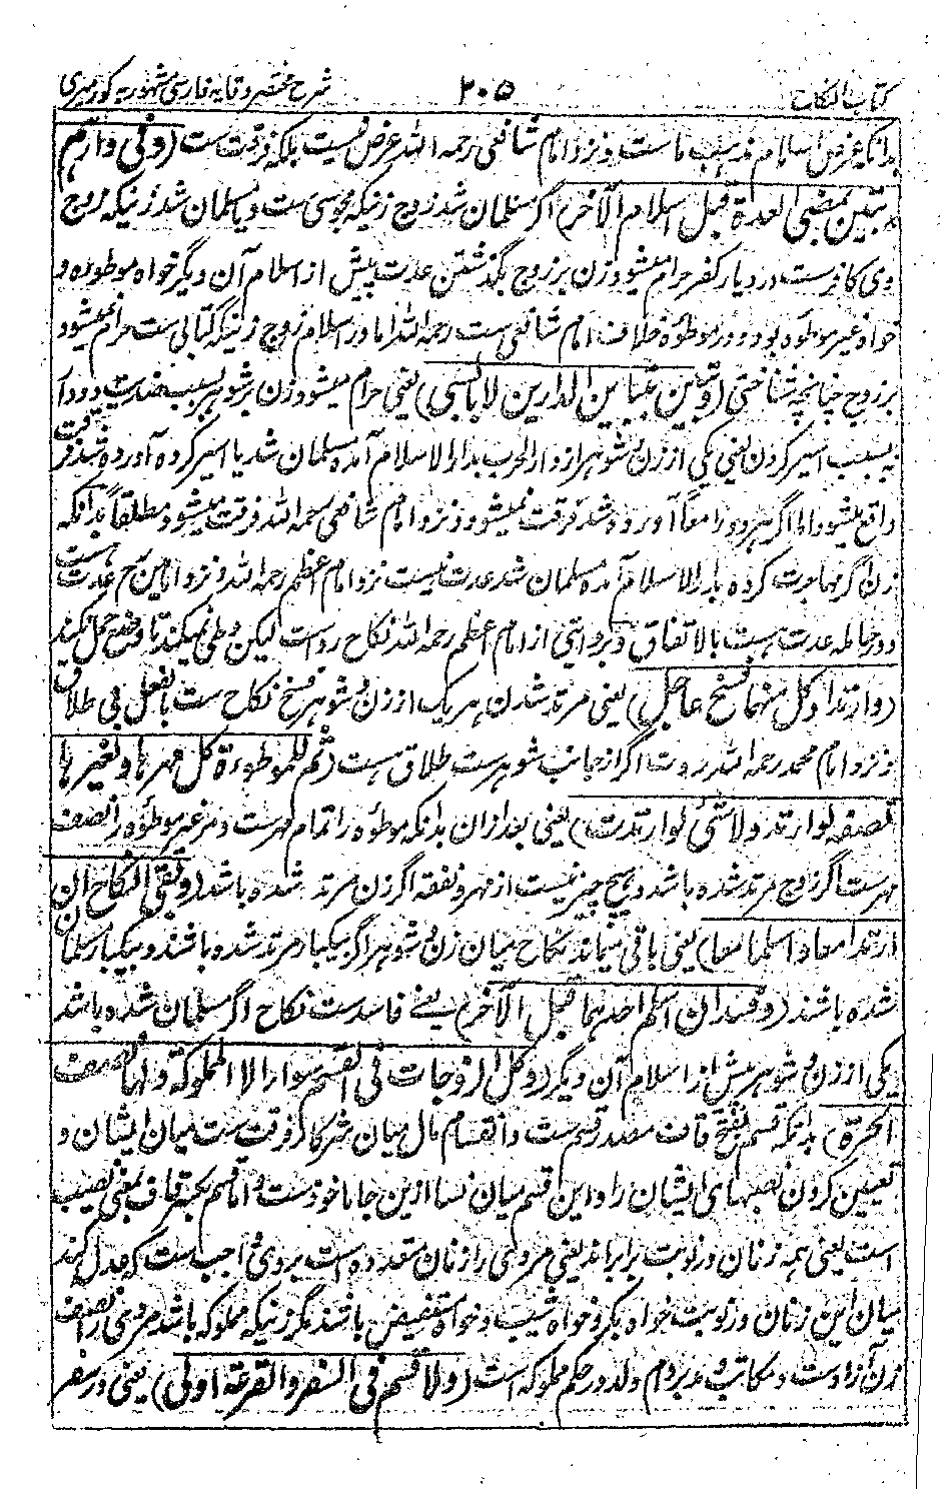 کتاب النکاح ۲۰۵ شرح مختصر وقایه فارسی مشهور به کور میری
بدانکه عرض اسلام مذهب ما ست و نزد امام شافعی رحمه الله عرض نیست بلکه فرقت ست (و فی دارهم
تبین بمضی العدة قبل اسلام الآخر) اگر مسلمان شد زوج زنیکه مجوسی ست و یا مسلمان شد زنیکه زوج
وی کافرست در دیار کفر حرام میشود زن بر زوج بگذشتن عدت پیش از اسلام آن دیگر خواه موطوءه و
خواه غیر موطوءه بود و در موطوءه خلاف امام شافعی ست رحمه الله اما در اسلام زوج زنیکه کتابی ست حرام نمیشود
بر زوج چنانچه شناختی (و تبین بتباین الدارین لا بالسبی) یعنی حرام میشود زن بر شوهر بسبب ضدیت دو دار
نه بسبب اسیر کردن یعنی یکی از زن و شوهر از دار الحرب بدار الاسلام آمده مسلمان شد یا اسیر کرده آورده شد فرقت
واقع میشود اما اگر هر دو را معاً آورده شد فرقت نمیشود و نزد امام شافعی رحمه الله فرقت میشود مطلقاً بدانکه
زن اگر مهاجرت کرده بدار الاسلام آمده مسلمان شد عدت نیست نزد امام اعظم رحمه الله و نزد امامین رح عدت هست
و در حامله عدت هست بالاتفاق و بروایتی از امام اعظم رحمه الله نکاح رواست لیکن وطی نمیکند تا وضع حمل نکند
(و ارتداد کل منهما فسخ عاجل) یعنی مرتد شدن هر یک از زن و شوهر فسخ نکاح ست بالفعل بی طلاق
و نزد امام محمد رحمه الله ردت اگر از جانب شوهرست طلاق ست (ثم للموطوءة کل مهرها و لغیرها
نصفه لو ارتد و لا شئ لو ارتدت) یعنی بعد ازان بدانکه موطوءه را تمام مهرست و مر غیر موطوءه را نصف
مهرست اگر زوج مرتد شده باشد و هیچ چیز نیست از مهر و نفقه اگر زن مرتد شده باشد (و بقی النکاح ان
ارتدا معا و اسلما معا) یعنی باقی میماند نکاح میان زن و شوهر اگر بیکبار مرتد شده باشند و بیکبار مسلمان
شده باشند (و فسد ان اسلم احدهما قبل الآخر) یعنے فاسدست نکاح اگر مسلمان شده باشد
یکی از زن و شوهر پیش از اسلام آن دیگر (و کل الزوجات فی القسم سواء الا المملوکة و لها نصف
الحرة) بدانکه قسم بفتح قاف مصدر قسمت و انقسام مال میان شرکا و فرقیست میان ایشان و
تعیین کردن نصیبهای ایشان را و این قسم میان نسا ازین جا ماخوذست و اما قسم بکسر قاف بمعنی نصیب
است یعنی همه زنان در نوبت برابر اند یعنی مردی را زنان متعدده است بروی واجب ست که عدل کند
میان این زنان در نوبت خواه بکر و خواه ثیب و خواه مستفیض باشند مگر زنیکه مملوکه باشد مر وی را نصف
زن آزادست و مکاتب و مدبر و ام ولد در حکم مملوکه است (و لا قسم فی السفر و القرعة اولی) یعنی در سفر